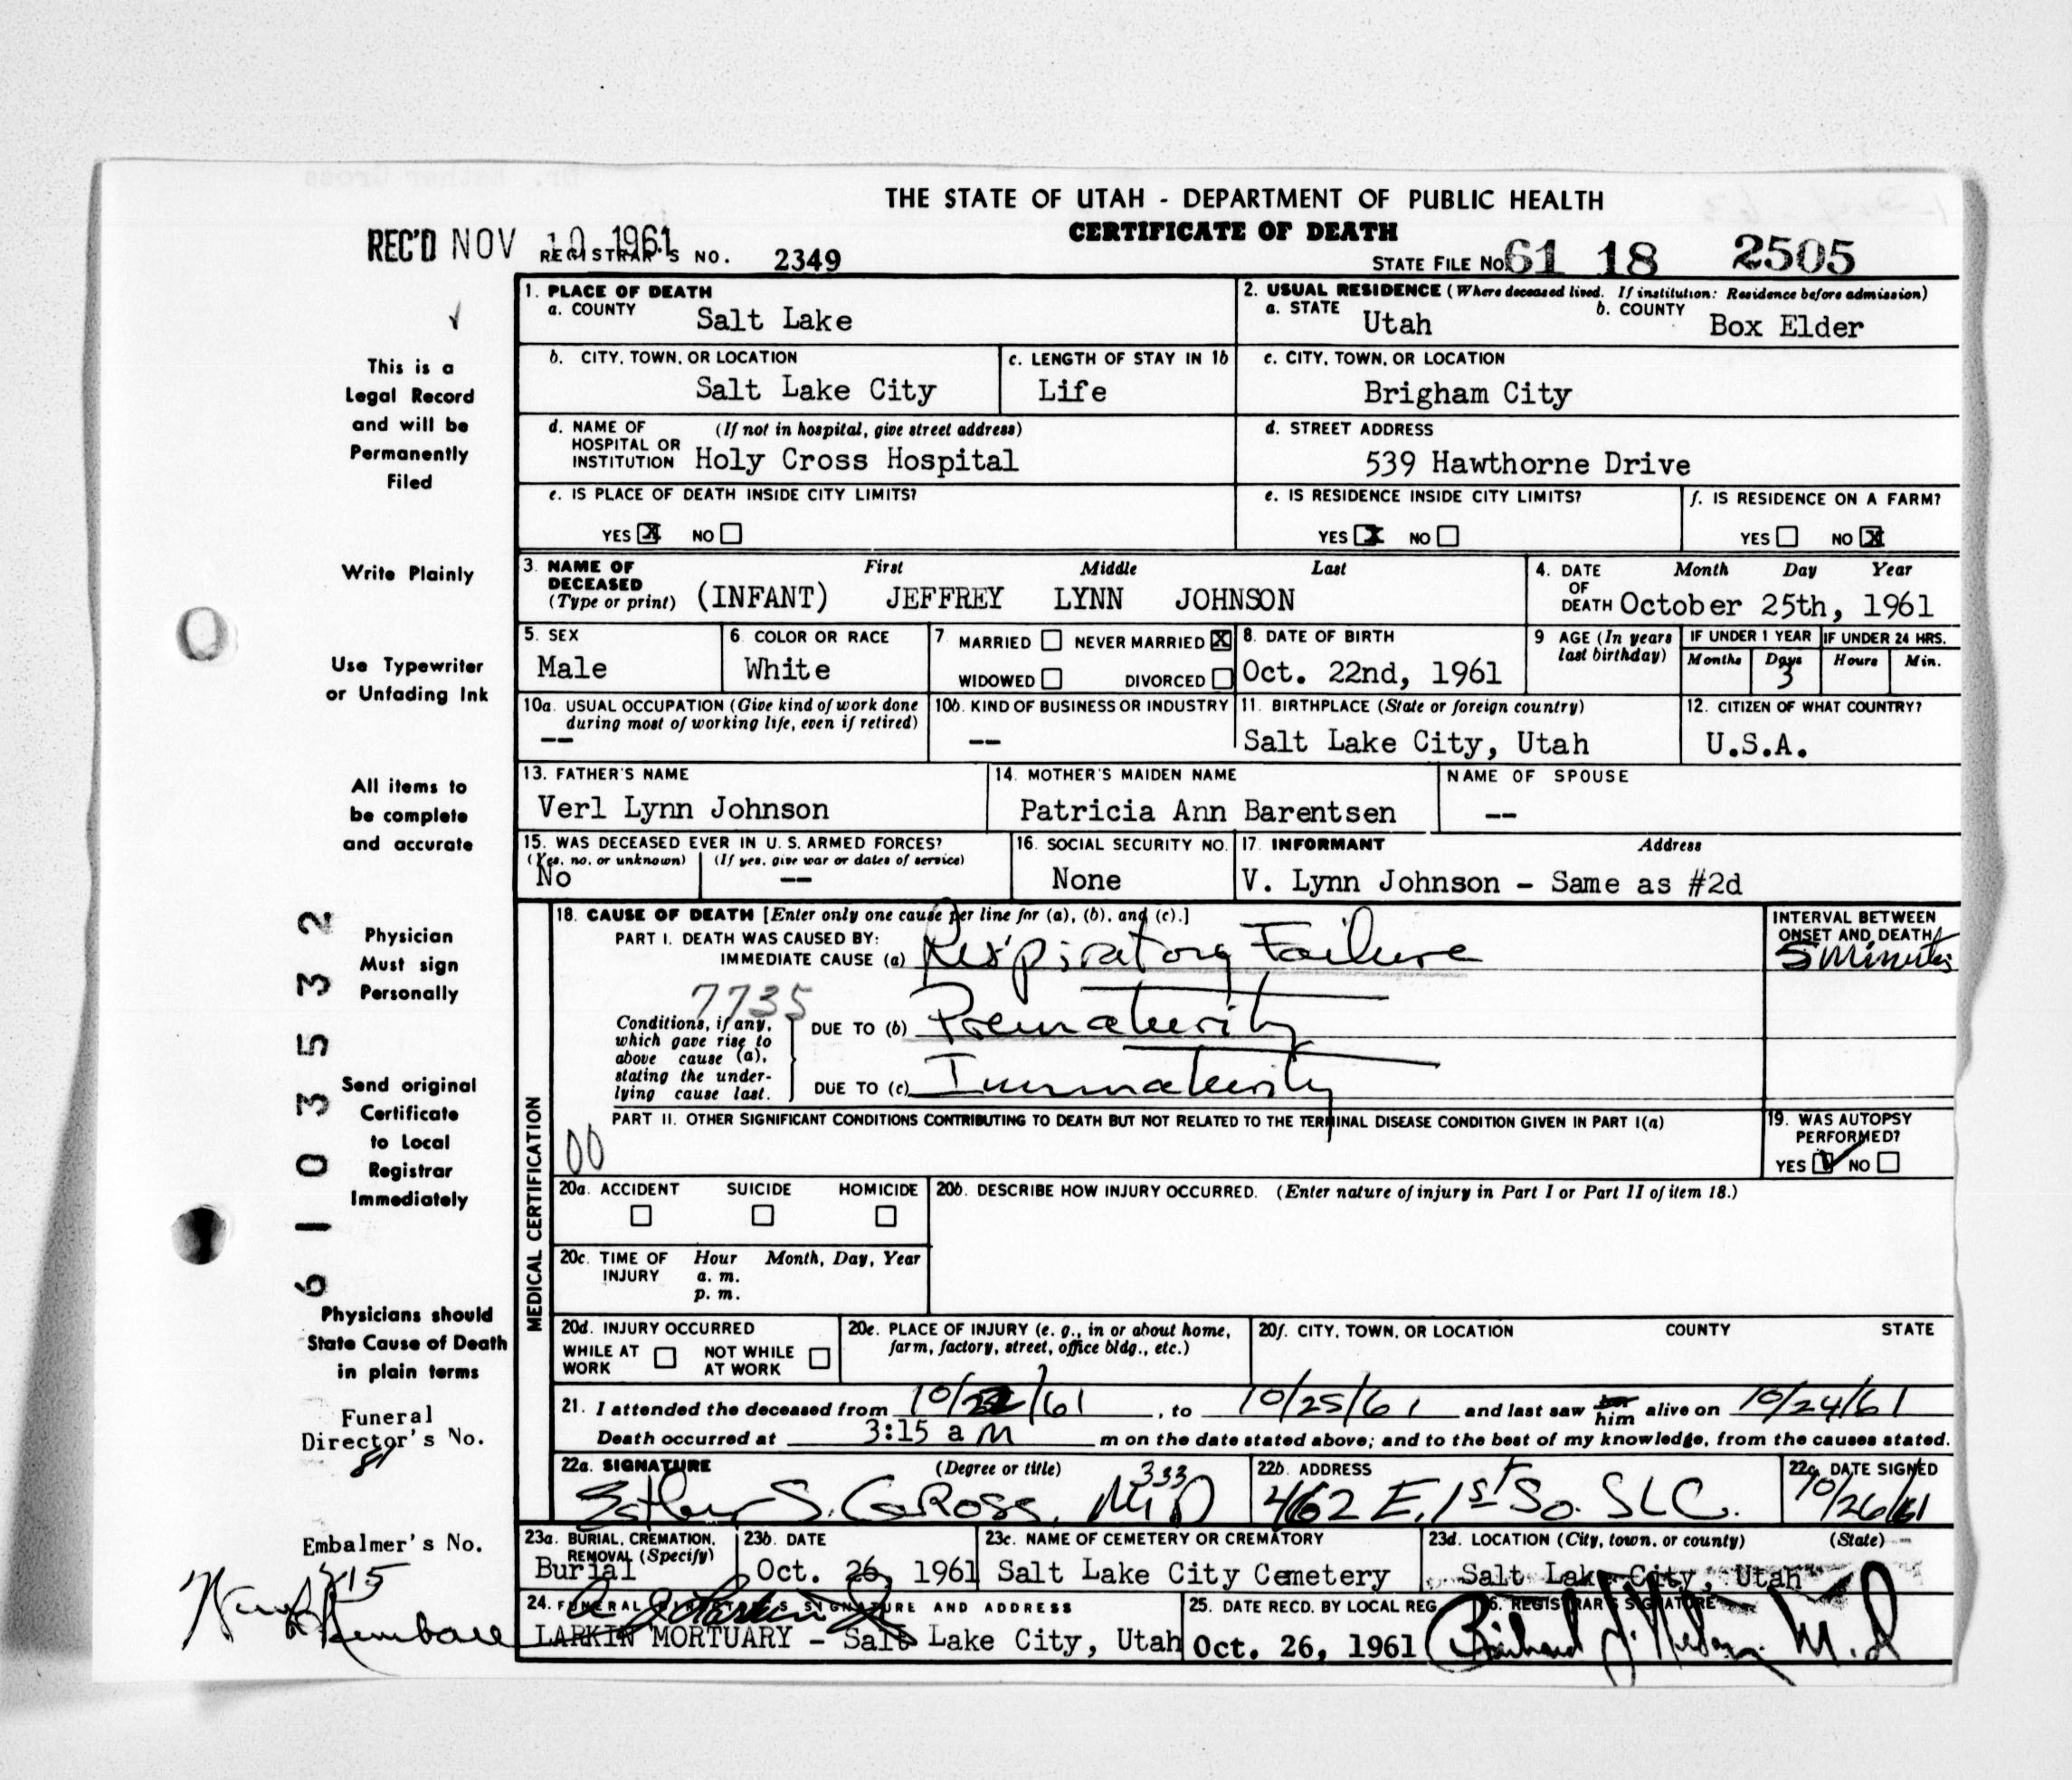 THE STATE OF UTAH - DEPARTMENT OF PUBLIC HEALTH
CERTIFICATE OF DEATH
REC'D NOV 10 1961
REGISTRAR'S NO. 2349
STATE FILE NO. 61 18 2505
This is a
Legal Record
and will be
Permanently
Filed
Write Plainly
Use Typewriter
or Unfading Ink
All items to
be complete
and accurate
Physician
Must sign
Personally
Send original
Certificate
to Local
Registrar
Immediately
Physicians should
State Cause of Death
in plain terms
Funeral
Director's No.
81
Embalmer's No.
215
Kimball
6 1 0 3 5 3 2
1. PLACE OF DEATH
a. COUNTY Salt Lake
2. USUAL RESIDENCE (Where deceased lived. If institution: Residence before admission)
a. STATE Utah b. COUNTY Box Elder
b. CITY, TOWN, OR LOCATION
Salt Lake City
c. LENGTH OF STAY IN 1b
Life
c. CITY, TOWN, OR LOCATION
Brigham City
d. NAME OF (If not in hospital, give street address)
HOSPITAL OR
INSTITUTION Holy Cross Hospital
d. STREET ADDRESS
539 Hawthorne Drive
e. IS PLACE OF DEATH INSIDE CITY LIMITS?
YES X NO
e. IS RESIDENCE INSIDE CITY LIMITS?
YES X NO
f. IS RESIDENCE ON A FARM?
YES NO X
3. NAME OF First Middle Last
DECEASED
(Type or print) (INFANT) JEFFREY LYNN JOHNSON
4. DATE Month Day Year
OF
DEATH October 25th, 1961
5. SEX
Male
6. COLOR OR RACE
White
7. MARRIED NEVER MARRIED X
WIDOWED DIVORCED
8. DATE OF BIRTH
Oct. 22nd, 1961
9 AGE (In years
last birthday)
IF UNDER 1 YEAR IF UNDER 24 HRS.
Months Days Hours Min.
3
10a. USUAL OCCUPATION (Give kind of work done
during most of working life, even if retired)
--
10b. KIND OF BUSINESS OR INDUSTRY
--
11. BIRTHPLACE (State or foreign country)
Salt Lake City, Utah
12. CITIZEN OF WHAT COUNTRY?
U.S.A.
13. FATHER'S NAME
Verl Lynn Johnson
14. MOTHER'S MAIDEN NAME
Patricia Ann Barentsen
NAME OF SPOUSE
--
15. WAS DECEASED EVER IN U. S. ARMED FORCES?
(Yes, no, or unknown) (If yes, give war or dates of service)
No --
16. SOCIAL SECURITY NO.
None
17. INFORMANT Address
V. Lynn Johnson - Same as #2d
MEDICAL CERTIFICATION
18. CAUSE OF DEATH [Enter only one cause per line for (a), (b), and (c).]
PART I. DEATH WAS CAUSED BY:
IMMEDIATE CAUSE (a) Respiratory Failure
INTERVAL BETWEEN
ONSET AND DEATH
5 Minutes
7735
Conditions, if any,
which gave rise to
above cause (a),
stating the under-
lying cause last.
DUE TO (b) Prematurity
DUE TO (c) Immaturity
PART II. OTHER SIGNIFICANT CONDITIONS CONTRIBUTING TO DEATH BUT NOT RELATED TO THE TERMINAL DISEASE CONDITION GIVEN IN PART I(a)
00
19. WAS AUTOPSY
PERFORMED?
YES ✓ NO
20a. ACCIDENT SUICIDE HOMICIDE
20b. DESCRIBE HOW INJURY OCCURRED. (Enter nature of injury in Part I or Part II of item 18.)
20c. TIME OF Hour Month, Day, Year
INJURY a. m.
p. m.
20d. INJURY OCCURRED
WHILE AT NOT WHILE
WORK AT WORK
20e. PLACE OF INJURY (e. g., in or about home,
farm, factory, street, office bldg., etc.)
20f. CITY, TOWN, OR LOCATION COUNTY STATE
21. I attended the deceased from 10/22/61, to 10/25/61 and last saw her him alive on 10/24/61
Death occurred at 3:15 a M m on the date stated above; and to the best of my knowledge, from the causes stated.
22a. SIGNATURE (Degree or title) 333
Esther S. Gross, M.D
22b. ADDRESS
462 E. 1st So. SLC.
22c. DATE SIGNED
10/26/61
23a. BURIAL, CREMATION,
REMOVAL (Specify)
Burial
23b. DATE
Oct. 26, 1961
23c. NAME OF CEMETERY OR CREMATORY
Salt Lake City Cemetery
23d. LOCATION (City, town, or county) (State)
Salt Lake City, Utah
24. FUNERAL DIRECTOR'S SIGNATURE AND ADDRESS
LARKIN MORTUARY - Salt Lake City, Utah
25. DATE RECD. BY LOCAL REG.
Oct. 26, 1961
26. REGISTRAR'S SIGNATURE
M.D